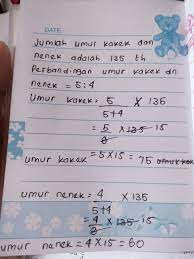 DATE:
Jumlah umur kakek dan
nenek adalah 135 th
Perbandingan umur kakek dn
nenek = 5:4
umur kakek = 5/5+4 × 135
= 5/9 × 135 15
umur kakek = 5×15 = 75
umur nenek = 4/5+4 × 135
= 4/9 × 135 15
umur nenek = 4×15 = 60